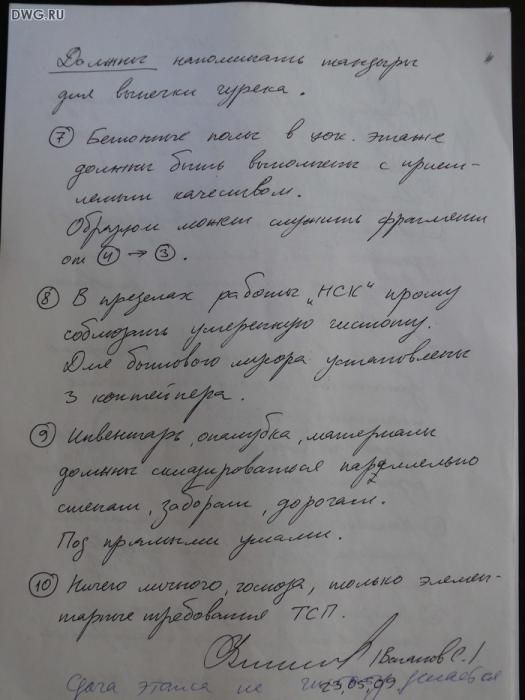 DWG.RU
Должны напоминать тандыры
для выпечки чурека.
⑦ Бетонные полы в цок. этаже
должны быть выполнены с прием-
лемым качеством.
Образцом может служить фрагмент
от ④ → ③.
⑧ В пределах работы „НСК“ прошу
соблюдать умеренную чистоту.
Для бытового мусора установлены
3 контейнера.
⑨ Инвентарь, опалубка, материалы
должны складироваться параллельно
стенам, заборам, дорогам.
Под прямыми углами.
⑩ Ничего личного, господа, только элемен-
тарные требования ТСП.
23.05.09
Сдача этапа не